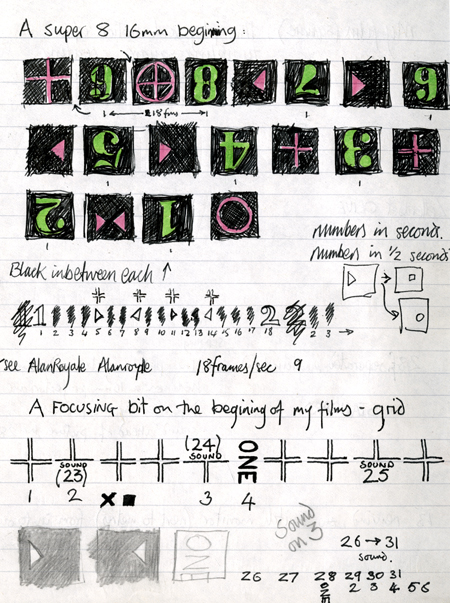 A super 8 16mm begining:
9 8 7 6
18fms
5 4 3
2 1
numbers in seconds.
numbers in 1/2 seconds
Black inbetween each ↑
1 2
1 2 3 4 5 6 7 8 9 10 11 12 13 14 15 16 17 18 2 3
see AlanRoyale Alanroyle 18frames/sec 9
A FOCUSING bit on the begining of my films - grid
(24)
SOUND SOUND ONE SOUND
(23) 25
1 2 3 4
Sound
on 3
ONE
26 → 31
sound.
26 27 28 29 30 31
ONE 2 3 4 5 6